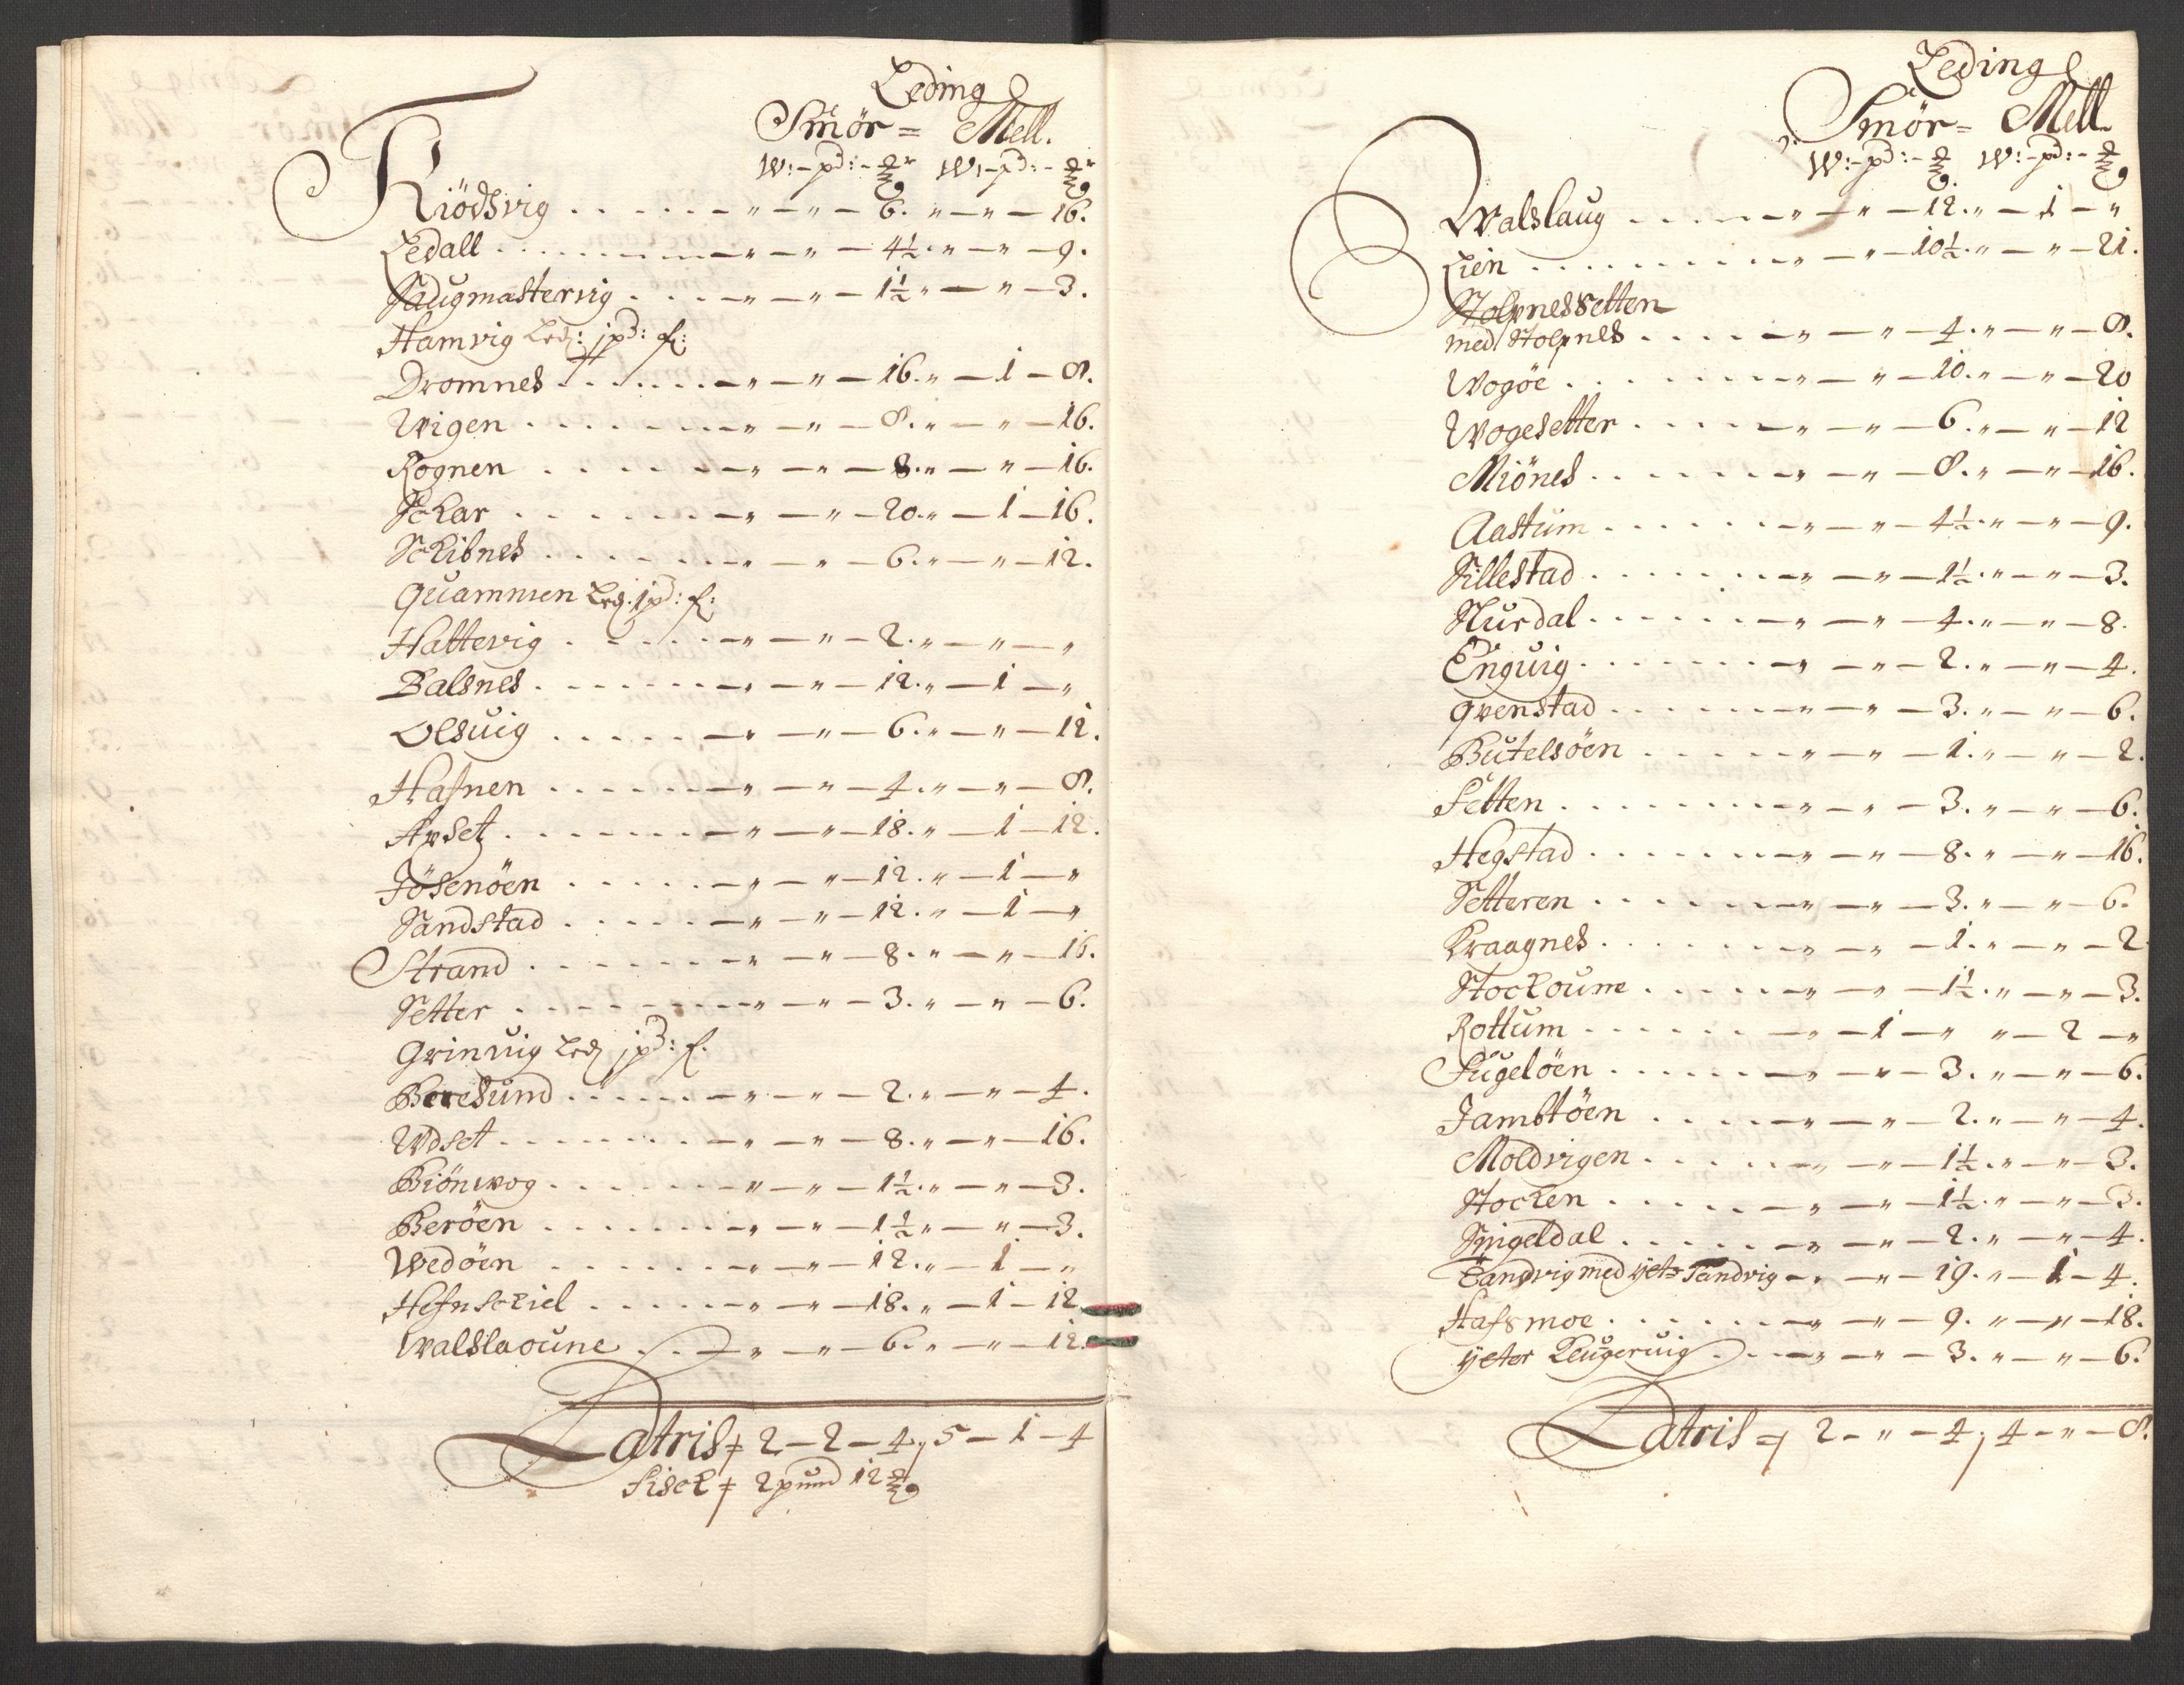 Leding
Smör = Mell.
W: - pd: - mrk W: - pd: - mrk
Kiödsvig . . . . . . - „ - „ - 6. „ - „ - 16.
Ledall . . . . . . - „ - „ - 4½. „ - „ - 9.
Saugmastervig . . . . - „ - „ - 1½ „ - „ - 3.
Hamvig Led: j pd: f:
Dromnes . . . . . . - „ - „ - 16. „ - 1 - 8.
Wigen . . . . . . - „ - „ - 8. „ - „ - 16.
Rognen . . . . . . - „ - „ - 8. „ - „ - 16.
Schar . . . . . . - „ - „ - 20. „ - 1 - 16.
Schibnes . . . . . . - „ - „ - 6. „ - „ - 12.
Quammen Led. 1 pd: f:
Hattevig . . . . . . - „ - „ - 2. „ - „ - „
Balsnes . . . . . . - „ - „ - 12. „ - 1 - „
Olsuig . . . . . . - „ - „ - 6. „ - „ - 12.
Hafnen . . . . . . - „ - „ - 4. „ - „ - 8.
Arset . . . . . . - „ - „ - 18. „ - 1 - 12.
Jösenöen . . . . . . - „ - „ - 12. „ - 1 - „
Sandstad . . . . . . - „ - „ - 12. „ - 1 - „
Strand . . . . . . - „ - „ - 8. „ - „ - 16.
Setter . . . . . . - „ - „ - 3. „ - „ - 6.
Grinvig Led j pd: f.
Beresund . . . . . . - „ - „ - 2. „ - „ - 4.
Udset . . . . . . - „ - „ - 8. „ - „ - 16.
Biönwog . . . . . . - „ - „ - 1½. „ - „ - 3.
Beröen . . . . . . - „ - „ - 1½ „ - „ - 3.
Wedöen . . . . . . - „ - „ - 12. „ - 1 - „
Hefnschiel . . . . . - „ - „ - 18. „ - 1 - 12
Walslaoune . . - „ - „ - 6. „ - „ - 12.
Latris 2 - 2 - 4, 5 - 1 - 4
Fisch 2 pund 12 mrk
Leding
Smör = Mell.
W: - pd: - mrk W: - pd: - mrk
Walslaug . . . . . . - „ - „ - 12. „ - 1 - „
Lien . . . . . . - „ - „ - 10½. „ - „ - 21.
Stolpnessetten
med Stolpnes . . . . - „ - „ - 4. „ - „ - 8.
Wogöe . . . . . . - „ - „ - 10. „ - „ - 20
Wogesetter . . . . . - „ - „ - 6. „ - „ - 12
Miönes . . . . . . - „ - „ - 8. „ - „ - 16.
Aastum . . . . . . - „ - „ - 4½. „ - „ - 9.
Sillestad . . . . . . - „ - „ - 1½. „ - „ - 3.
Nurdal . . . . . . - „ - „ - 4. „ - „ - 8.
Enguig . . . . . . - „ - „ - 2. „ - „ - 4.
Grenstad . . . . . . - „ - „ - 3. „ - „ - 6.
Butelsöen . . . . . . - „ - „ - 1. „ - „ - 2.
Setten . . . . . . - „ - „ - 3. „ - „ - 6.
Hegstad . . . . . . - „ - „ - 8. „ - „ - 16.
Setteren . . . . . . - „ - „ - 3. „ - „ - 6.
Kraagnes . . . . . . - „ - „ - 1. „ - „ - 2
Stockoune . . . . . . - „ - „ - 1½. „ - „ - 3.
Rottum . . . . . . - „ - 1 - „ „ - 2 - „
Fugelöen . . . . . . - „ - „ - 3. „ - „ - 6.
Jambtöen . . . . . . - „ - „ - 2. „ - „ - 4.
Moldvigen . . . . . - „ - „ - 1½. „ - „ - 3.
Stocken . . . . . . - „ - „ - 1½. „ - „ - 3.
Spigeldal . . . . . . - „ - „ - 2. „ - „ - 4.
Sandvig med ytr Sandvig - „ - „ - 19. „ - 1 - 4.
Hafsmoe . . . . . . - „ - „ - 9. „ - „ - 18.
ytter Leugervig . . . - „ - „ - 3. „ - „ - 6.
Latris 2 - „ - 4, 4 - „ - 8.